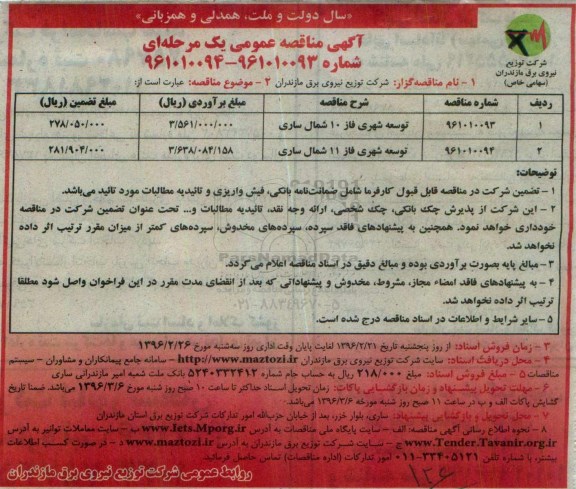 «سال دولت و ملت، همدلی و همزبانی»
آگهی مناقصه عمومی یک مرحله‌ای
شماره ۹۶۱۰۱۰۰۹۳-۹۶۱۰۱۰۰۹۴
شرکت توزیع
نیروی برق مازندران
(سهامی خاص)
۱ - نام مناقصه‌گزار: شرکت توزیع نیروی برق مازندران ۲ - موضوع مناقصه: عبارت است از:
ردیف شماره مناقصه شرح مناقصه مبلغ برآوردی (ریال) مبلغ تضمین (ریال)
۱ ۹۶۱۰۱۰۰۹۳ توسعه شهری فاز ۱۰ شمال ساری ۳/۵۶۱/۰۰۰/۰۰۰ ۲۷۸/۰۵۰/۰۰۰
۲ ۹۶۱۰۱۰۰۹۴ توسعه شهری فاز ۱۱ شمال ساری ۳/۶۳۸/۰۸۴/۱۵۸ ۲۸۱/۹۰۴/۰۰۰
توضیحات:
۱ - تضمین شرکت در مناقصه قابل قبول کارفرما شامل ضمانت‌نامه بانکی، فیش واریزی و تائیدیه مطالبات مورد تائید می‌باشد.
۲ - این شرکت از پذیرش چک بانکی، چک شخصی، ارائه وجه نقد، تائیدیه مطالبات و... تحت عنوان تضمین شرکت در مناقصه
خودداری خواهد نمود. همچنین به پیشنهادهای فاقد سپرده، سپرده‌های مخدوش، سپرده‌های کمتر از میزان مقرر ترتیب اثر داده
نخواهد شد.
۳ - مبالغ پایه بصورت برآوردی بوده و مبالغ دقیق در اسناد مناقصه اعلام می‌گردد.
۴ - به پیشنهادهای فاقد امضاء مجاز، مشروط، مخدوش و پیشنهاداتی که بعد از انقضای مدت مقرر در این فراخوان واصل شود مطلقا
ترتیب اثر داده نخواهد شد.
۵ - سایر شرایط و اطلاعات در اسناد مناقصه درج شده است.
۳ - زمان فروش اسناد: از روز پنجشنبه تاریخ ۱۳۹۶/۲/۲۱ لغایت پایان وقت اداری روز سه‌شنبه مورخ ۱۳۹۶/۲/۲۶
۴ - محل دریافت اسناد: سایت شرکت توزیع نیروی برق مازندران http://www.maztozi.ir - سامانه جامع پیمانکاران و مشاوران - سیستم
مناقصات ۵ - مبلغ فروش اسناد: مبلغ ۲۱۸/۰۰۰ ریال به حساب جام شماره ۵۲۴۰۳۳۲۴۱۲ بانک ملت شعبه امیر مازندرانی ساری
۶ - مهلت تحویل پیشنهاد و زمان بازگشایی پاکات: زمان تحویل اسناد حداکثر تا ساعت ۱۰ صبح روز شنبه مورخ ۱۳۹۶/۳/۶ می‌باشد. ضمنا تاریخ
گشایش پاکات الف و ب در ساعت ۱۱ صبح روز شنبه مورخه ۱۳۹۶/۳/۶ می‌باشد.
۷ - محل تحویل و بازگشایی پیشنهاد: ساری، بلوار خزر، بعد از خیابان حزب‌الله امور تدارکات شرکت توزیع برق استان مازندران
۸ - نحوه اطلاع رسانی آگهی مناقصه: الف - سایت پایگاه ملی مناقصات به آدرس www.Iets.Mporg.ir ب - سایت معاملات توانیر به آدرس
www.Tender.Tavanir.org.ir ج - سایت شرکت توزیع نیروی برق مازندران به آدرس www.maztozi.ir د - در صورت کسب اطلاعات
بیشتر، با شماره تلفن ۳۳۴۰۵۱۲۱-۰۱۱ امور تدارکات (اداره مناقصات) تماس حاصل فرمائید.
روابط عمومی شرکت توزیع نیروی برق مازندران